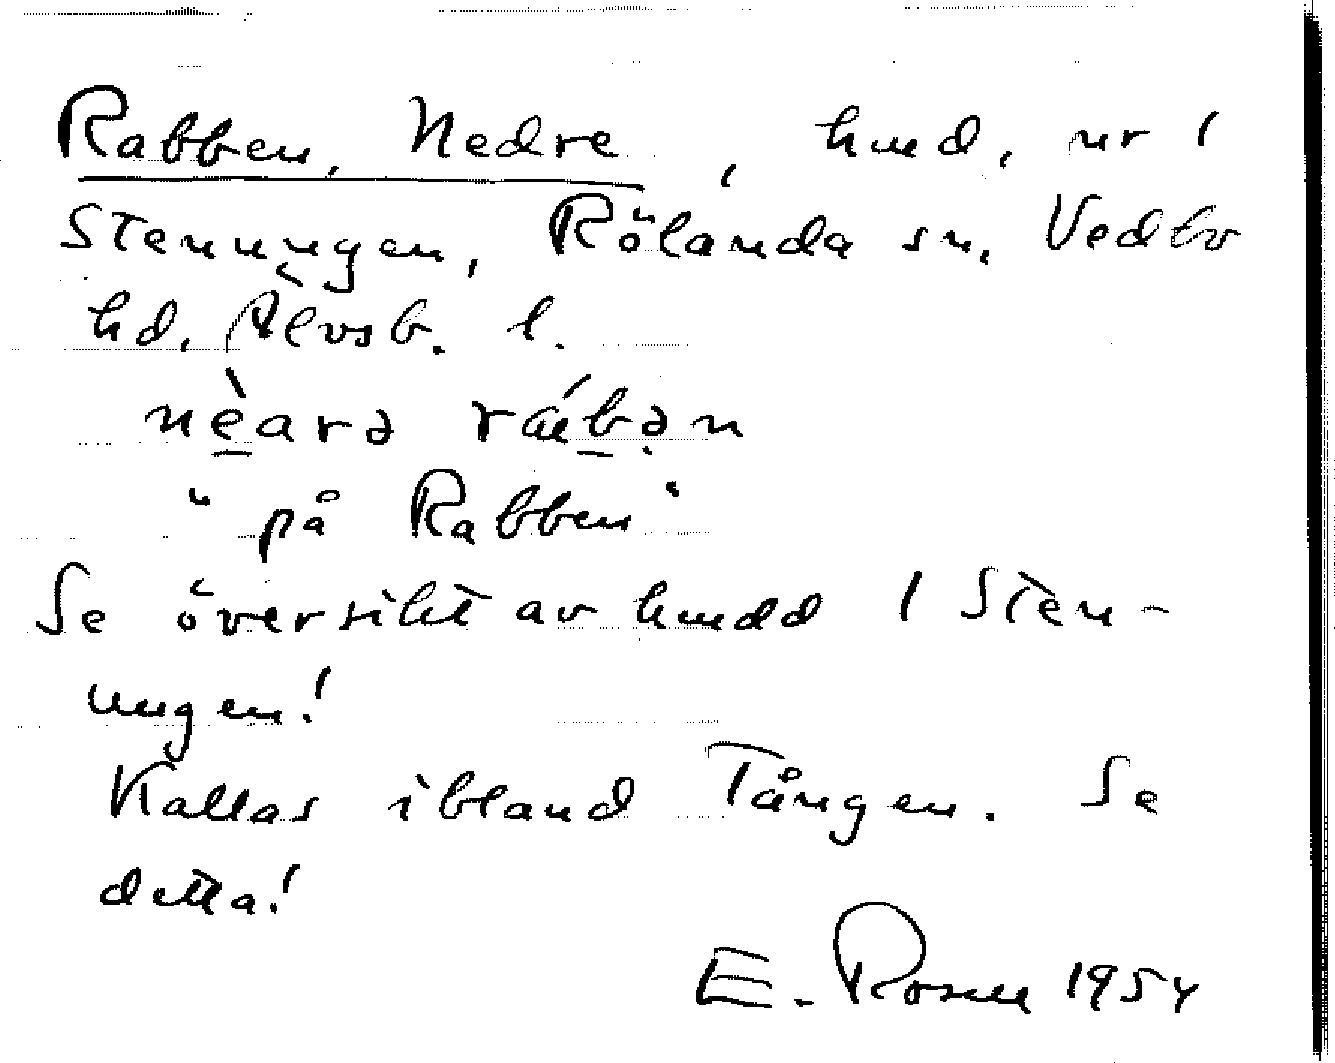 Rabben, Nedre, hmd, nr 1
Stenungen, Rölanda sn, Vedbo
hd. Älvsb. l.
nèarə ráebən
"på Rabben"
Se översikt av hmdd 1 Sten-
ungen!
Kallas ibland Tången. Se
detta!
E. Rosell 1954